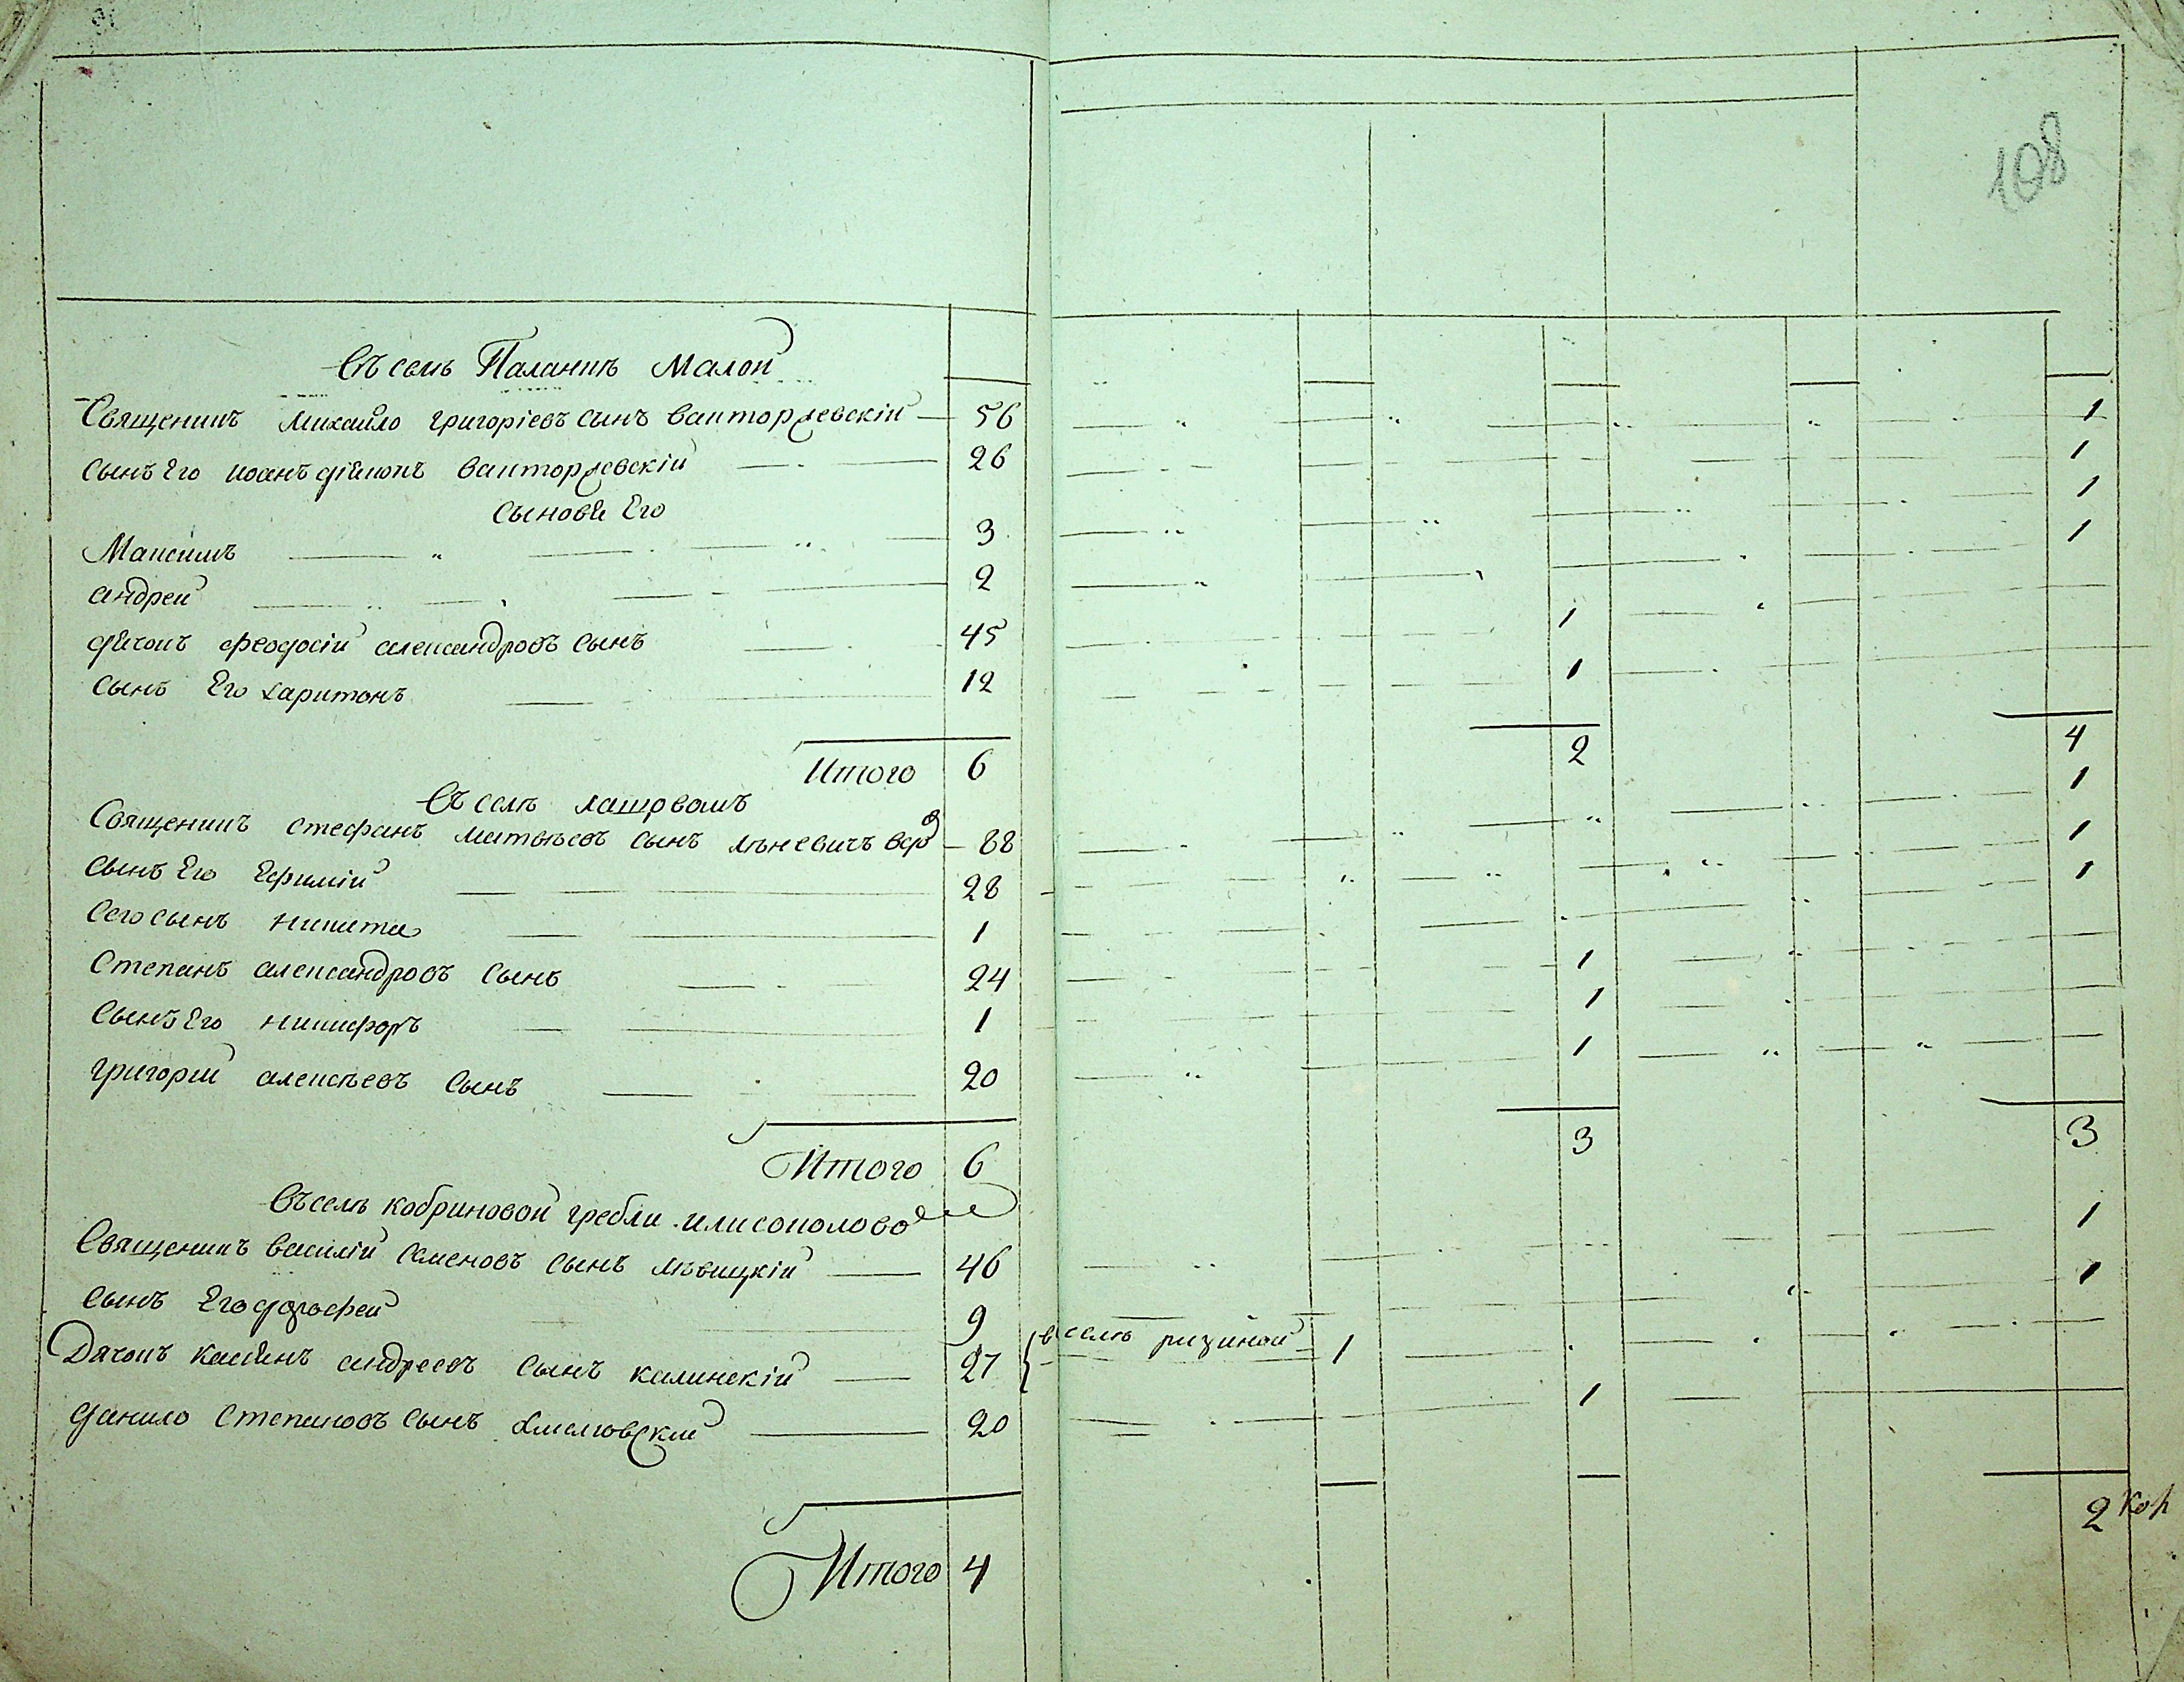 108
Въ селѣ Паланкѣ Малой
Священикъ Михайло григоріевъ сынъ Ванторжевскій 56 1
сынъ Его иоанъ діякопъ Ванторжевскій 26 1
сыновя Его
Максимъ 3 1
андрей 2 1
дячокъ феодосій александровъ сынъ 45 1
сынъ Его харитонъ 12 1
Итого 6 2 4
Въ селѣ
Священикъ стефанъ матвѣевъ сынъ 88 1
сынъ Его Ефимій 28 1
Сего сынъ никита 1 1
Степанъ александровъ сынъ 24 1
Сынъ Его никифоръ 1 1
григорій алексѣевъ сынъ 20 1
Итого 6 3 3
Въ селѣ кобриновой гребли
Священикъ василій Семеновъ сынъ лѣвицкій 46 1
сынъ Его дорофей 9 1
Дячокъ касіянъ андреевъ сынъ калинскій 27 { в селѣ ризиной 1
данило Степановъ сынъ 20 1
Итого 4 2 Кор